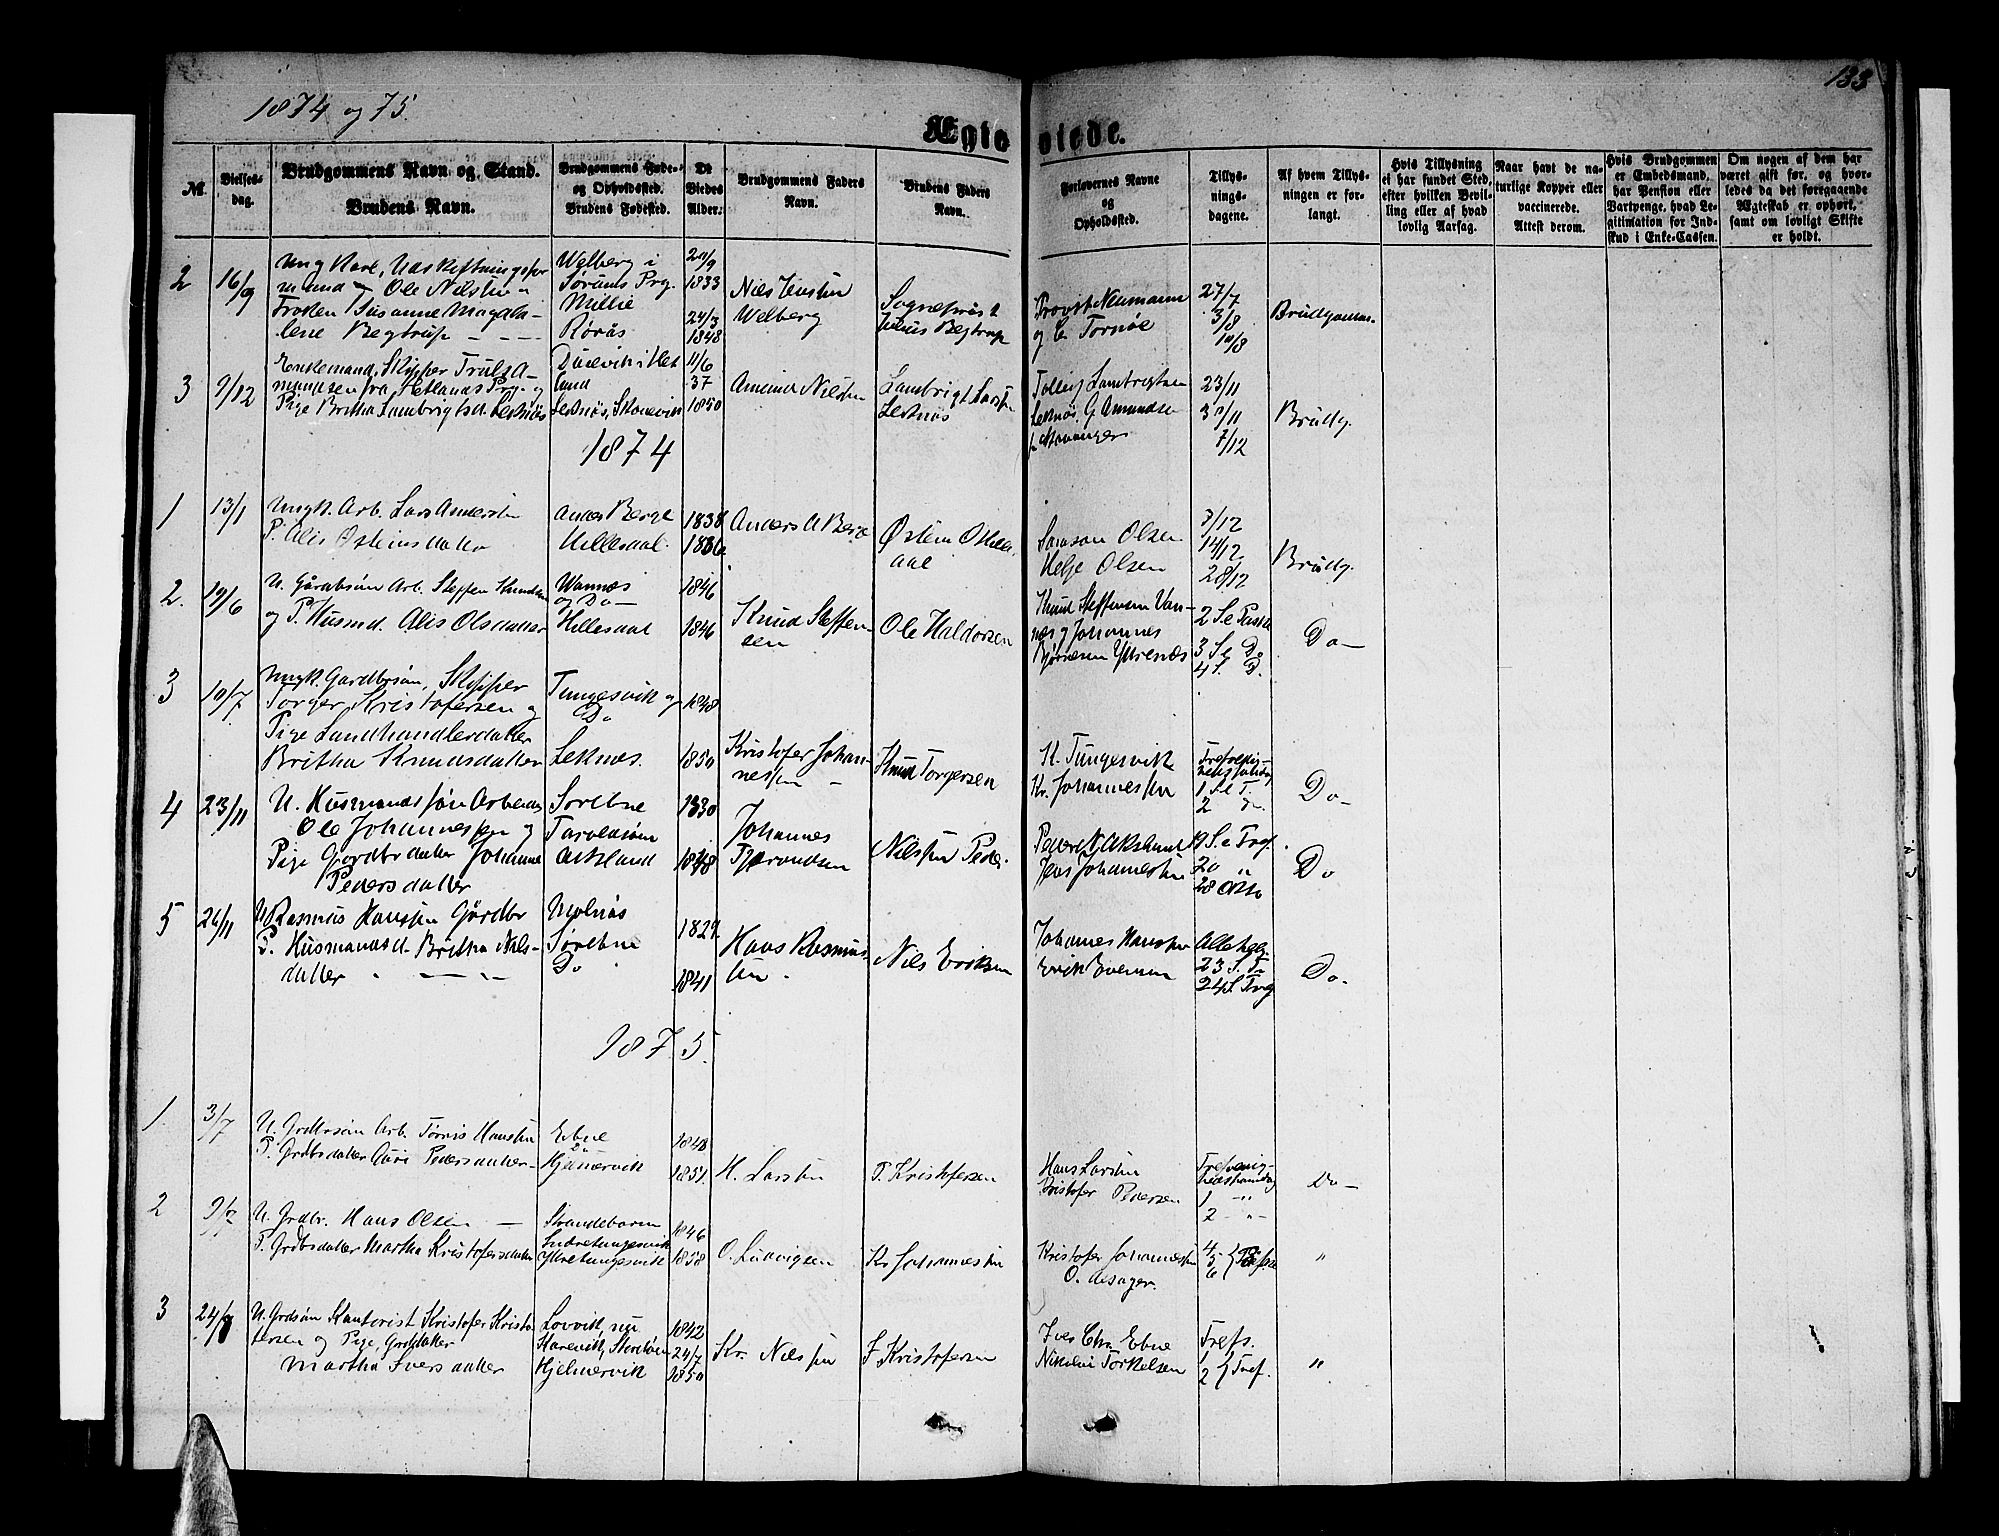 1874 og 75.
133
Ægteviede.
No.
Vielses-
dag.
Brudgommens Navn og Stand.
Brudens Navn.
Brudgommens Føde-
og Opholdssted.
Brudens Fødested.
De
Viedes
Alder.
Brudgommens Faders
Navn.
Brudens Faders
Navn.
Forlovernes Navne
og
Opholdssted.
Tillys-
nings-
dagene.
Af hvem Tillys-
ningen er for-
langt.
Hvis Tillysning
ei har fundet Sted,
efter hvilken Bevil-
ling eller af hvad
lovlig Aarsag.
Naar havt de na-
turlige Kopper eller
vaccinerede.
Attest derom.
Hvis Brudgommen
er Embedsmand,
har Pension eller
Vartpenge, hvad Le-
gitimation for Ind-
skud i Enke-Cassen.
Om nogen af dem har
været gift før, og hvor-
ledes da det foregaaende
Ægteskab er ophørt,
samt om lovligt Skifte
er holdt.
2 16/9
Ungkarl, Udskiftningsfor
mand Ole Nilsen
Frøken Susanne Magda-
lene Begtrup
Welberg i
Sørums Prg.
Røraas
1833
24/3
1848
Nils Jensen
Welberg
Sogneprest
Julius Begtrup
Provst Neumann
og C. Tornøe
27/7
3/8
10/8
Brudgommen
3 9/12
Enkemand, Skipper Truls A-
mundsen fra Hetlands Prg. og
Pige Britha Lambrigtsd. Leknøs
Dusevik i Het
land
Leknøs, Skonevik
11/6
37
1850
Amund Nilsen
Lambrigt Larsen
Leknøs
Tollev Lambrigtsen
Leknøs, G Amundsen
fr Stavanger
23/11
30/11
7/12
Brudg.
1874
1 13/1
Ungk. Arb. Lars Andersen
P. Alis Østensdatter
Andes Berge
Hillesdal
1838
1836
Anders A Berge
Østen
Samson Olsen
Helje Olsen
7/12
14/12
28/12
Brudg.
2. 19/6
U. Gårdbsøn Arb. Steffen Knudsen
og P. Husmd. Alis Olsdatter
Wannes
og Do
Hillesdal
1846
1846
Knud Steffen-
sen
Ole Haldorsen
Knud Steffensen Van-
nes og Johannes
Bjørnesen Ytrenæs
2 S. e Paaske
3 S e Do
4 S. D.
Do
3 19/7
Ungk. Gardbsøn, Skipper
Torger Kristofersen og
Pige Landhandlerdatter
Britha Knudsdatter
Tungesvik og
Do
Leknes.
1848
1850
Kristofer Johan-
nessen
Knud Torgersen
K. Tungesvik
Kr. Johannessen
1 S e T.
2
Do
4 23/11
U. Husmandssøn Arbeider
Ole Johannessen og
Pige Gardbrdatter Johanne
Pedersdatter
Sørebne
Akseland
1830
1848
Johannes
Tjerandsen
Nilssen Peder
Jens Johannessen
19 S. e Tref.
20 "
Do
5 26/11
U Rasmus Hanssen Gårdbr
P. Husmandsd. Britha Nils-
datter
Molnøs
Sørebne
Do
1829.
1841
Hans Rasmus-
sen
Nils Eriksen
Johannes Hanssen
Erik Evensen
Allehelg.
23 S. Tr
24 S Tref
Do.
1875.
1. 3/7
U. Grdbrsøn Arb. Tørris Hanssen
P. Grdbsdatter Guri Pedersdatter
Ebne
Do
Hjelmervik
1848
1851.
H. Larsen
P. Kristofersen
Hans Larsen
Kristofer Pedersen
Trefoldig-
hedssøndag
1 "
2 "
Do
2 9/7
U. Grdbr. Hans Olsen
P. Grdbsdatter Martha Kristofersdatter
Strandebarm
Indretungesvik
Ytretungesvik
1846
1858
O. Ludvigsen
Kr Johannessen
Kristofer Johannessen
O. Aasager.
4
5
6
"
3
U. Grdsøn Kantorist Kristofer Kristo
fersen og Pige, Grddatter
Martha Iversdatter
Lovvik, nu
Hjelmervik
1842
24/7
1850
Kr. Nilssen
I Kristofersen
Iver Chr. Ebne
Nikolai Torkelsen
Trefs.
1
2 Tref.
"